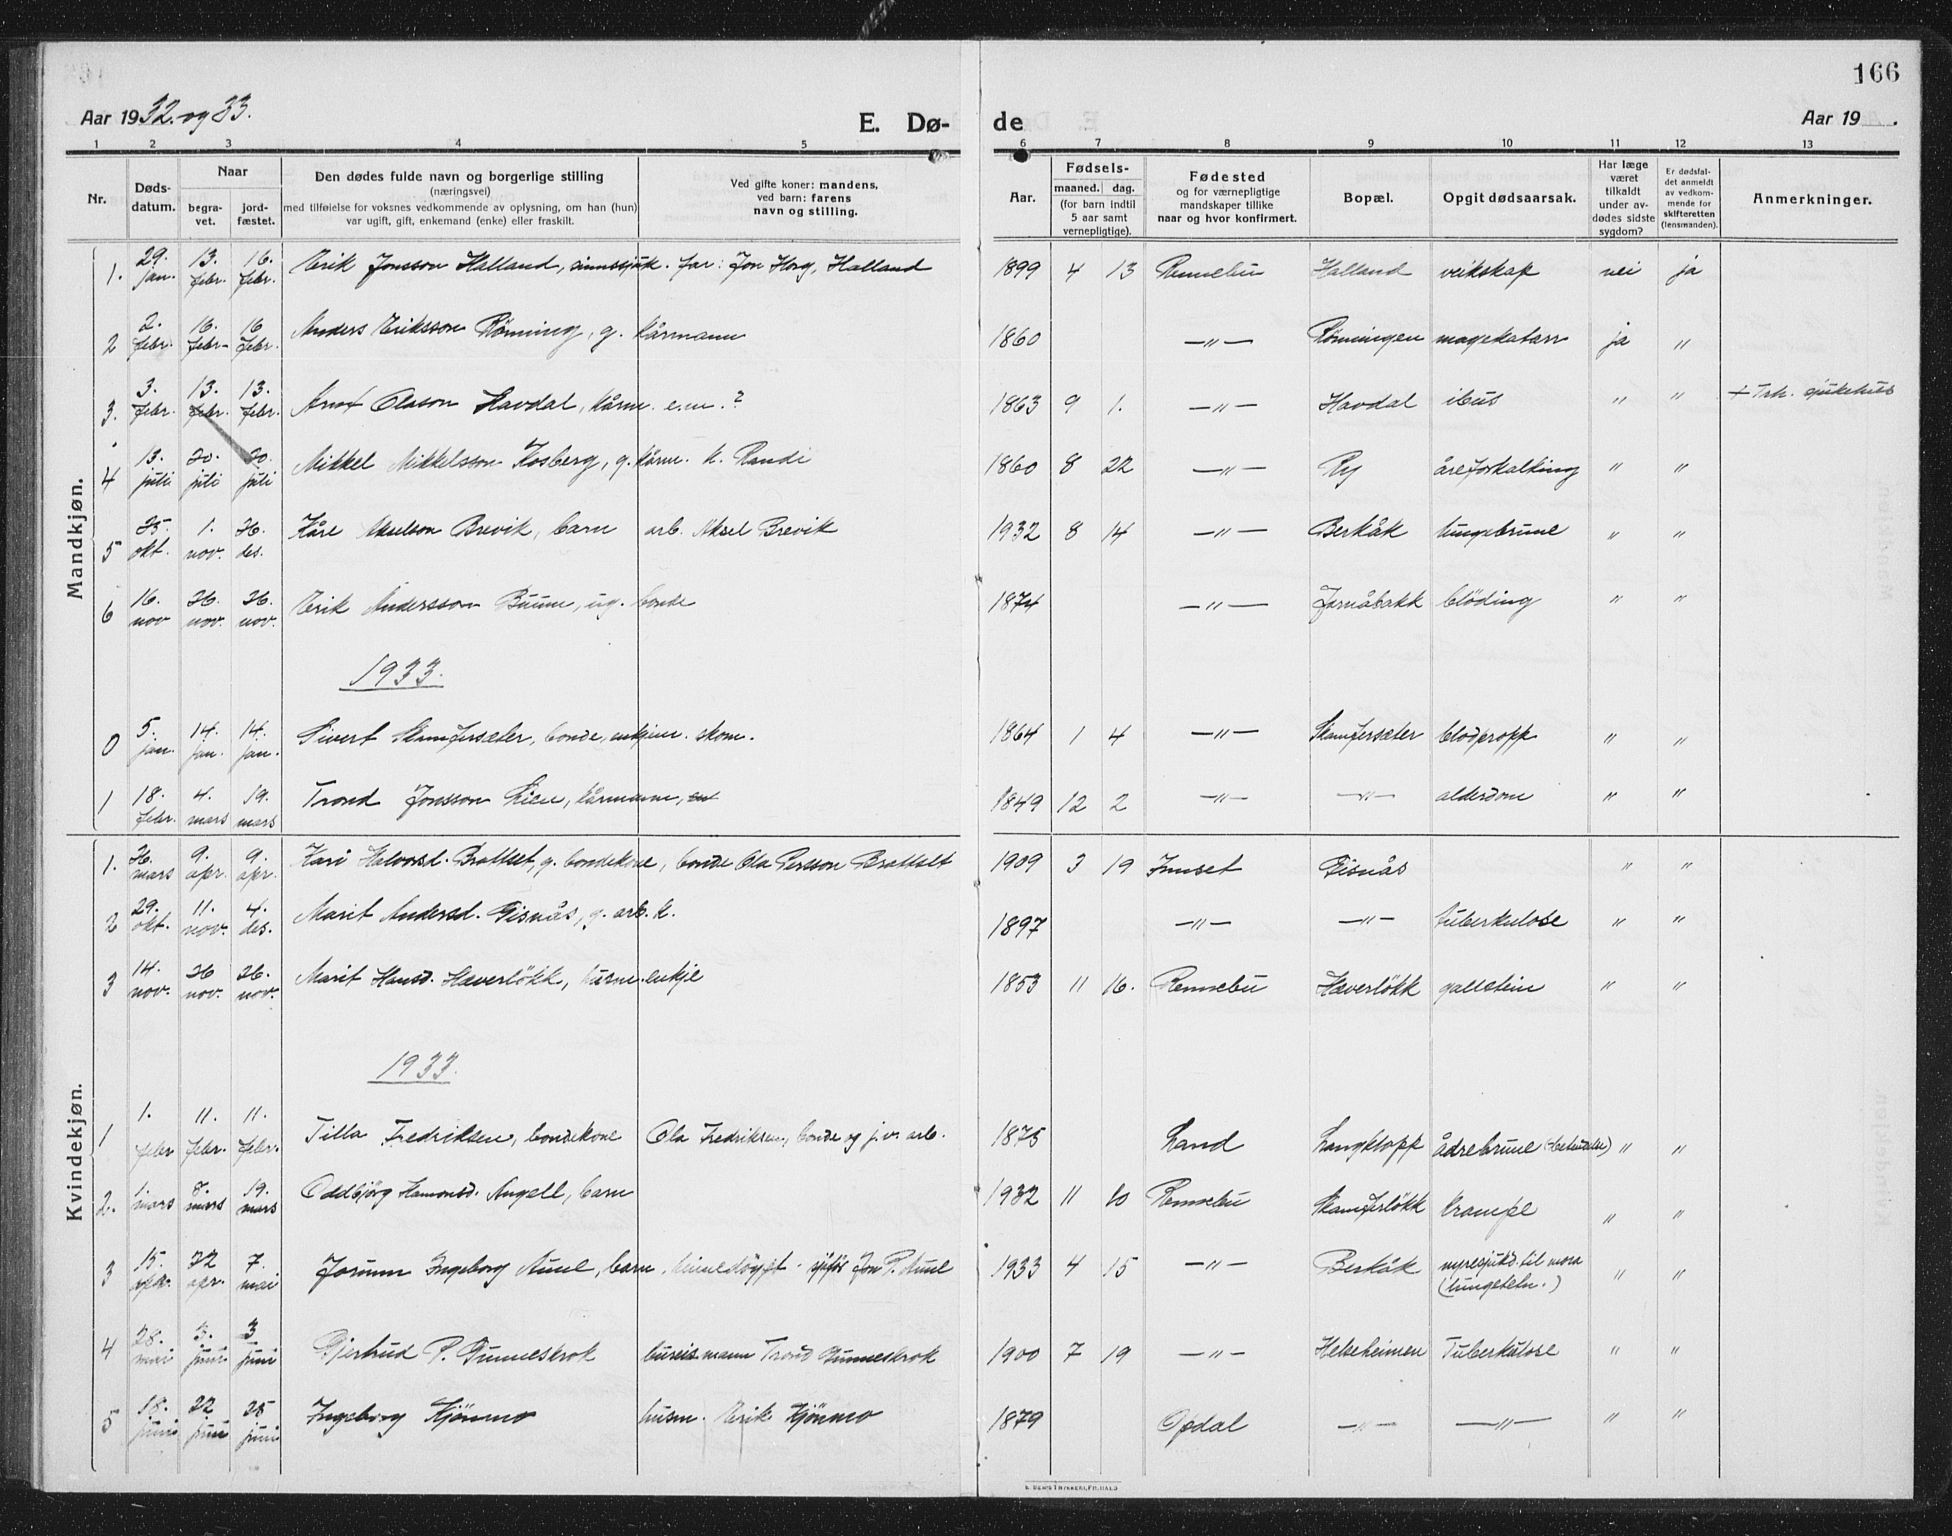 166
Aar 1932. og 33.
E. Dø-
de
Aar 19 .
1 2 3 4 5 6 7 8 9 10 11 12 13
Nr.
Døds-
datum.
Naar
begra-
vet.
jord-
fæstet.
Den dødes fulde navn og borgerlige stilling
(næringsvei)
med tilføielse for voksnes vedkommende av oplysning, om han (hun)
var ugift, gift, enkemand (enke) eller fraskilt.
Ved gifte koner: mandens,
ved barn: farens
navn og stilling.
Aar.
Fødsels-
maaned. dag.
(for barn indtil
5 aar samt
vernepligtige).
Fødested
og for værnepligtige
mandskaper tillike
naar og hvor konfirmert.
Bopæl.
Opgit dødsaarsak.
Har læge
været
tilkaldt
under av-
dødes sidste
sygdom?
Er dødsfal-
det anmeldt
av vedkom-
mende for
skifteretten
(lensmanden).
Anmerkninger.
Mandkjøn.
1. 29. jan. 13. febr. 16. febr. Erik Jonsson Halland, sinnssjuk. far: Jon Horg, Halland 1899 4 13 Rennebu Halland veikskap nei ja
2 2. febr. 16. febr. 16 febr. Anders Eriksson Rønning, g. kårmann 1860 —„— Rønningen magekatarr ja „
3. 3. febr. 13. febr. 13. febr. Arnt Olason Havdal, kårm. e.m.? 1863 9 1. —„— Havdal ileus „ „ + Trh. sjukehus
4 13. juli 20. juli 20. juli Mikkel Mikkelsson Kosberg, g. kårm. k. Randi 1860 8 22 —„— Ry åreforkalking „ „
5 25 okt. 1. nov. 26. des. Kåre Akselson Brevik, barn arb. Aksel Brevik 1932 8 14 —„— Berkåk lungebrune „ „
6 16. nov 26. nov. 26. nov. Erik Andersson Buum, ug. bonde 1874 —„— Jarnåbakk blöding „ „
1933.
0 5. jan. 14. jan. 14. jan. Sivert Skamfersæter, bonde, skom. 1864 1 4 —„— Skamfersæter blodpropp „ „
1 18. febr. 4. mars 19. mars Trond Jonsson Lien, kårmann, 1849 12 2 —„— —„— alderdom „ „
Kvindekjøn.
1. 26. mars 9. apr. 9. apr. Kari Halvorsd. Brattset, g. bondekone, bonde Ola Persson Brattset 1909 3 19 Innset Gisnås „ „
2 29. okt. 11. nov. 4. des. Marit Andersd. Gisnås, g. arb. k. 1897 —„— —„— tuberkulose „ „
3 14. nov. 26 nov. 26. nov. Marit Hansd. Hæverløkk, enkje 1853 11 16. Rennebu Hæverløkk gallstein „ „
1933.
1 1. febr 11. febr. 11. febr. Tilla Fredriksen, bondekone Ola Fredriksen, bonde og j.v. arb. 1875 Land Langklopp ådrebrune „ „
2. 1. mars 8. mars 19. mars Oddbjörg Hamonsd. Angell, barn 1932 11 10 Rennebu Skamferløkk krampe „ „
3 15. apr. 22 apr. 7. mai Jorunn Ingeborg Aune, barn, heimedøypt. sjåfør Jon P. Aune 1933 4 15 —„— Berkåk nyresjukd. til mora (lungebetn.) „ „
4 28. mai 3. juni 3 juni Gjertrud P. Gunneskrok bureismann Trond Gunneskrok 1900 7 19 —„— Helseheimen Tuberkulose „ „
5 18. juni 22 juni 25 juni Ingeborg Kjönmo husm. Erik Kjönmo 1879 Opdal —„— —„— „ „